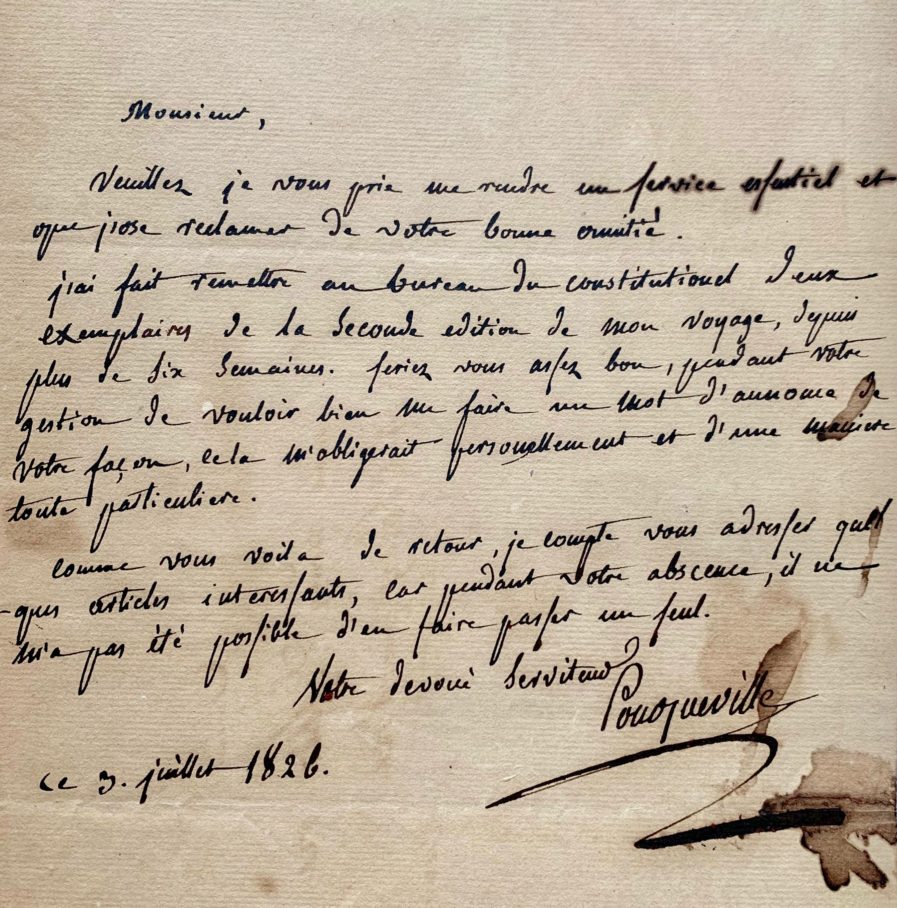 Monsieur,
Veuillez je vous prie me rendre un service essentiel et
que j'ose reclamer de votre bonne amitié.
j'ai fait remettre au bureau du constitutionel deux
exemplaires de la seconde edition de mon voyage, depuis
plus de six semaines. seriez vous assez bon, pendant votre
gestion de vouloir bien me faire un mot d'annonce de
votre façon, cela m'obligerait personellement et d'une maniere
toute particuliere.
comme vous voila de retour, je compte vous adresser quel
-ques articles interessants, car pendant votre abscence, il ne
m'a pas été possible d'en faire passer un seul.
Votre devoué serviteur
Pouqueville
ce 3. juillet 1826.